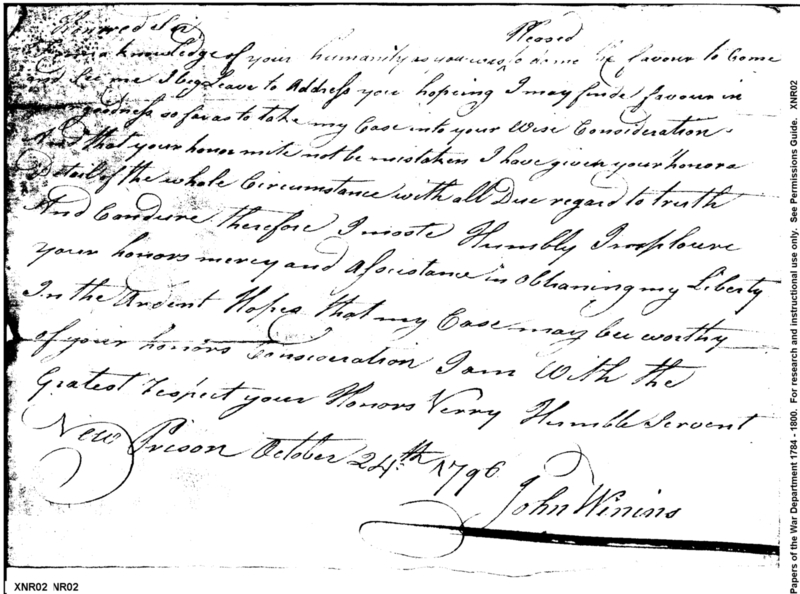 Honnred Sir
knowledge of your humanity as you was Pleased to do me the favour to Come
and See me I beg leave to Address you hoping I may finde favour in
goodness so far as to take my Case into your Wise Consideration
And that your honor mite not be mistaken I have given your honor a
Detail of the whole Circumstance with all Due regard to truth
And Candure therefore I moste Humbly Imploure
your honors mercy and Assistance in obtaning my Liberty
In the Ardent Hopes that my Case may bee worthy
of your honors Consideration I am With the
Gratest Respect your Honors Verry Humble Servent
New Prison October 24th 1796
John Winins
XNR02 NR02
Papers of the War Department 1784 - 1800. For research and instructional use only. See Permissions Guide. XNR02